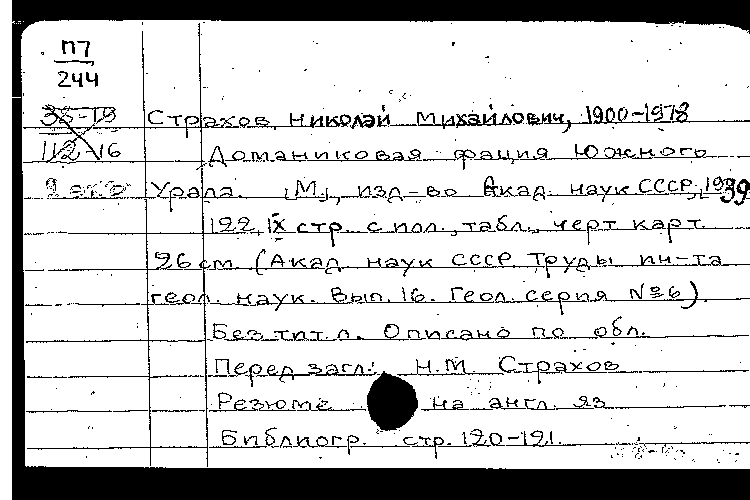 П7
244
33-19 Страхов, Николай Михайлович, 1900-1978
112-16 Доманиковая фация Южного
Урала. [М], изд-во Акад. наук СССР, 1939
122, IX стр. с илл., табл., черт карт.
26 см. (Акад. наук СССР. Труды ин-та
геол. наук. Вып. 16. Геол. серия №6).
Без тит. л. Описано по обл.
Перед загл.: Н.М. Страхов
Резюме на англ. яз
Библиогр. стр. 120-121.